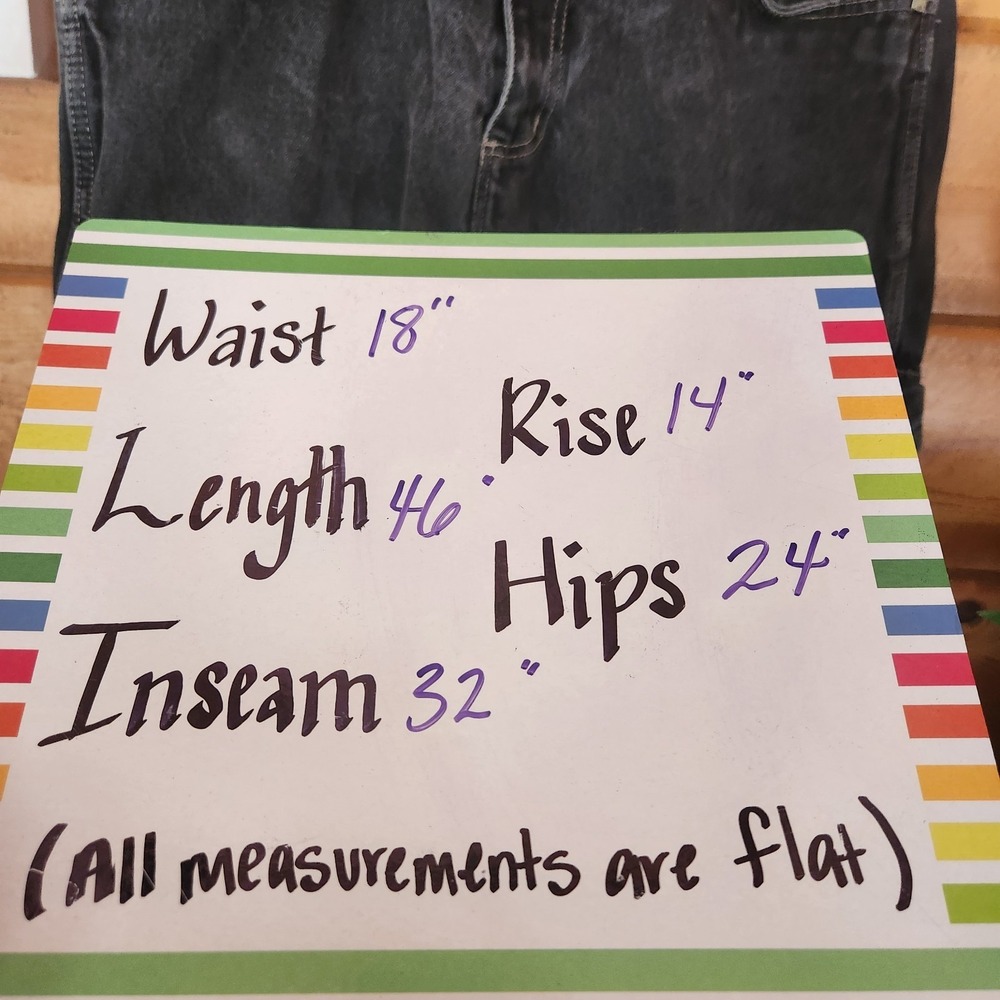 Waist 18"
Rise 14"
Length 46"
Hips 24"
Inseam 32"
(All measurements are flat)